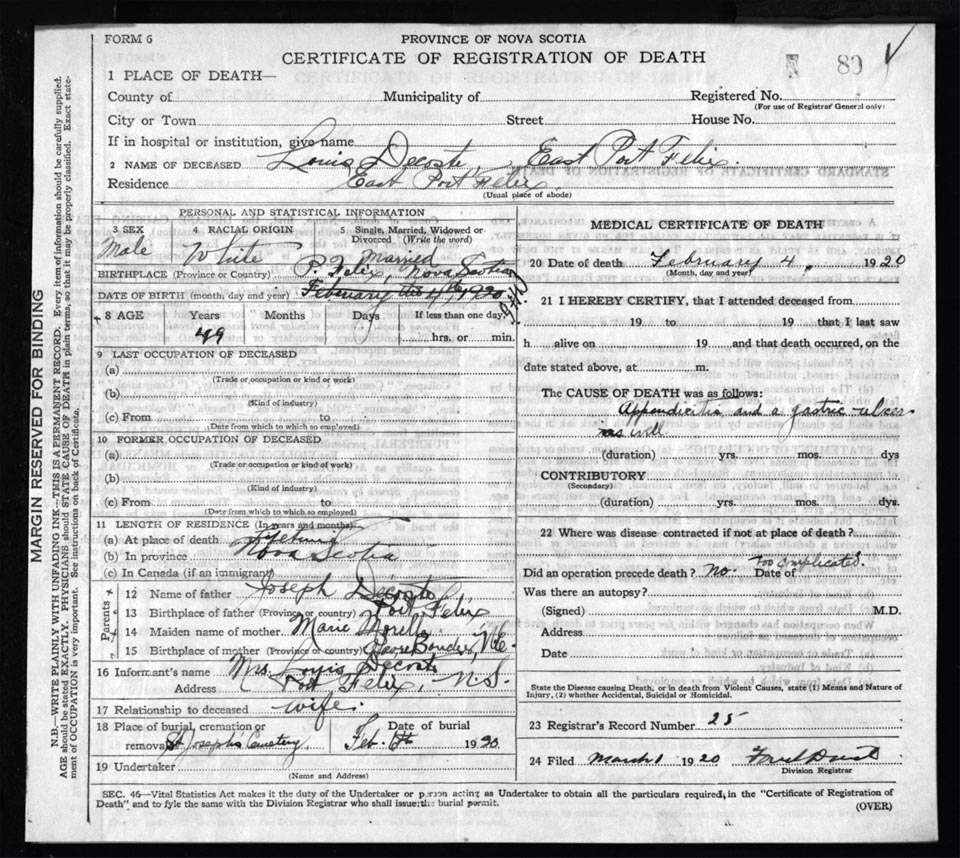 FORM 6
PROVINCE OF NOVA SCOTIA
CERTIFICATE OF REGISTRATION OF DEATH
89
1 PLACE OF DEATH—
County of Municipality of Registered No.
(For use of Registrar General only)
City or Town Street House No.
If in hospital or institution, give name
2 NAME OF DECEASED Louis Decoste, East Port Felix.
Residence East Port Felix.
(Usual place of abode)
PERSONAL AND STATISTICAL INFORMATION
3 SEX Male 4 RACIAL ORIGIN White 5 Single, Married, Widowed or Divorced (Write the word) Married
BIRTHPLACE (Province or Country) P. Felix, Nova Scotia
DATE OF BIRTH (month, day and year) February 4th, 1920
8 AGE Years Months Days If less than one day
49 hrs. or min.
9 LAST OCCUPATION OF DECEASED
(a)
(Trade or occupation or kind of work)
(b)
(Kind of industry)
(c) From to
(Date from which to which so employed)
10 FORMER OCCUPATION OF DECEASED
(a)
(Trade or occupation or kind of work)
(b)
(Kind of industry)
(c) From to
(Date from which to which so employed)
11 LENGTH OF RESIDENCE (In years and months)
(a) At place of death Lifetime
(b) In province Nova Scotia
(c) In Canada (if an immigrant)
Parents
12 Name of father Joseph Decoste
13 Birthplace of father (Province or country) Port Felix
14 Maiden name of mother Marie
15 Birthplace of mother (Province or country)
16 Informant's name Mrs. Louis Decoste
Address Port Felix, N.S.
17 Relationship to deceased wife.
18 Place of burial, cremation or removal St Josephs Cemetery, Date of burial Feb. 6th 1920.
19 Undertaker
(Name and Address)
MEDICAL CERTIFICATE OF DEATH
20 Date of death February 4, 1920
(Month, day and year)
21 I HEREBY CERTIFY, that I attended deceased from
19 to 19 that I last saw
h alive on 19 and that death occurred, on the
date stated above, at m.
The CAUSE OF DEATH was as follows:
Appendicitis and a gastric ulcer
as well
(duration) yrs. mos. dys
CONTRIBUTORY
(Secondary)
(duration) yrs. mos. dys.
22 Where was disease contracted if not at place of death?
Did an operation precede death? No. Date of Too complicated.
Was there an autopsy?
(Signed) M.D.
Address
Date
State the Disease causing Death, or in death from Violent Causes, state (1) Means and Nature of
Injury, (2) whether Accidental, Suicidal or Homicidal.
23 Registrar's Record Number 25
24 Filed March 1 1920
Division Registrar
SEC. 46—Vital Statistics Act makes it the duty of the Undertaker or person acting as Undertaker to obtain all the particulars required, in the "Certificate of Registration of
Death" and to fyle the same with the Division Registrar who shall issue the burial permit.
(OVER)
MARGIN RESERVED FOR BINDING
N.B.—WRITE PLAINLY WITH UNFADING INK—THIS IS A PERMANENT RECORD. Every item of information should be carefully supplied.
AGE should be stated EXACTLY. PHYSICIANS should STATE CAUSE OF DEATH in plain terms, so that it may be properly classified. Exact state-
ment of OCCUPATION is very important. See instructions on back of Certificate.